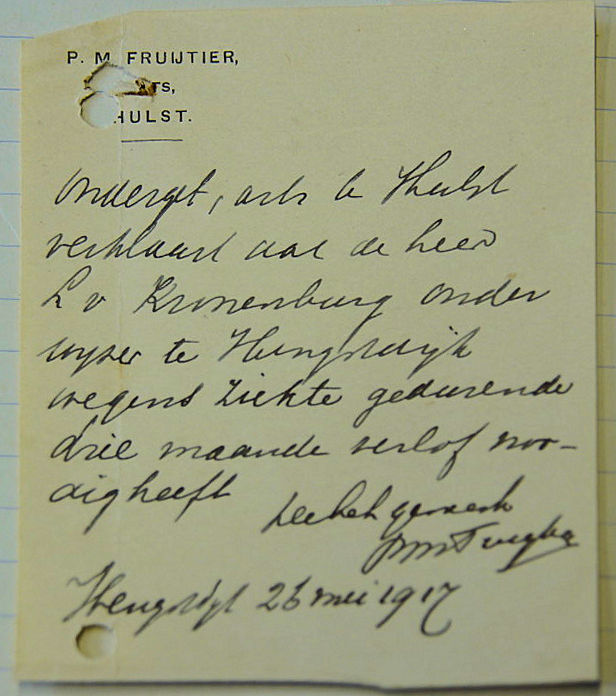 P. M. FRUIJTIER,
ARTS,
HULST.
Onderget, arts te Hulst
verklaart dat de heer
L v Kronenburg onder
wyser te Hengstdijk
wegens ziekte gedurende
drie maande verlof noo-
dig heeft
PM Fruytier
Hengstdyk 26 mei 1917